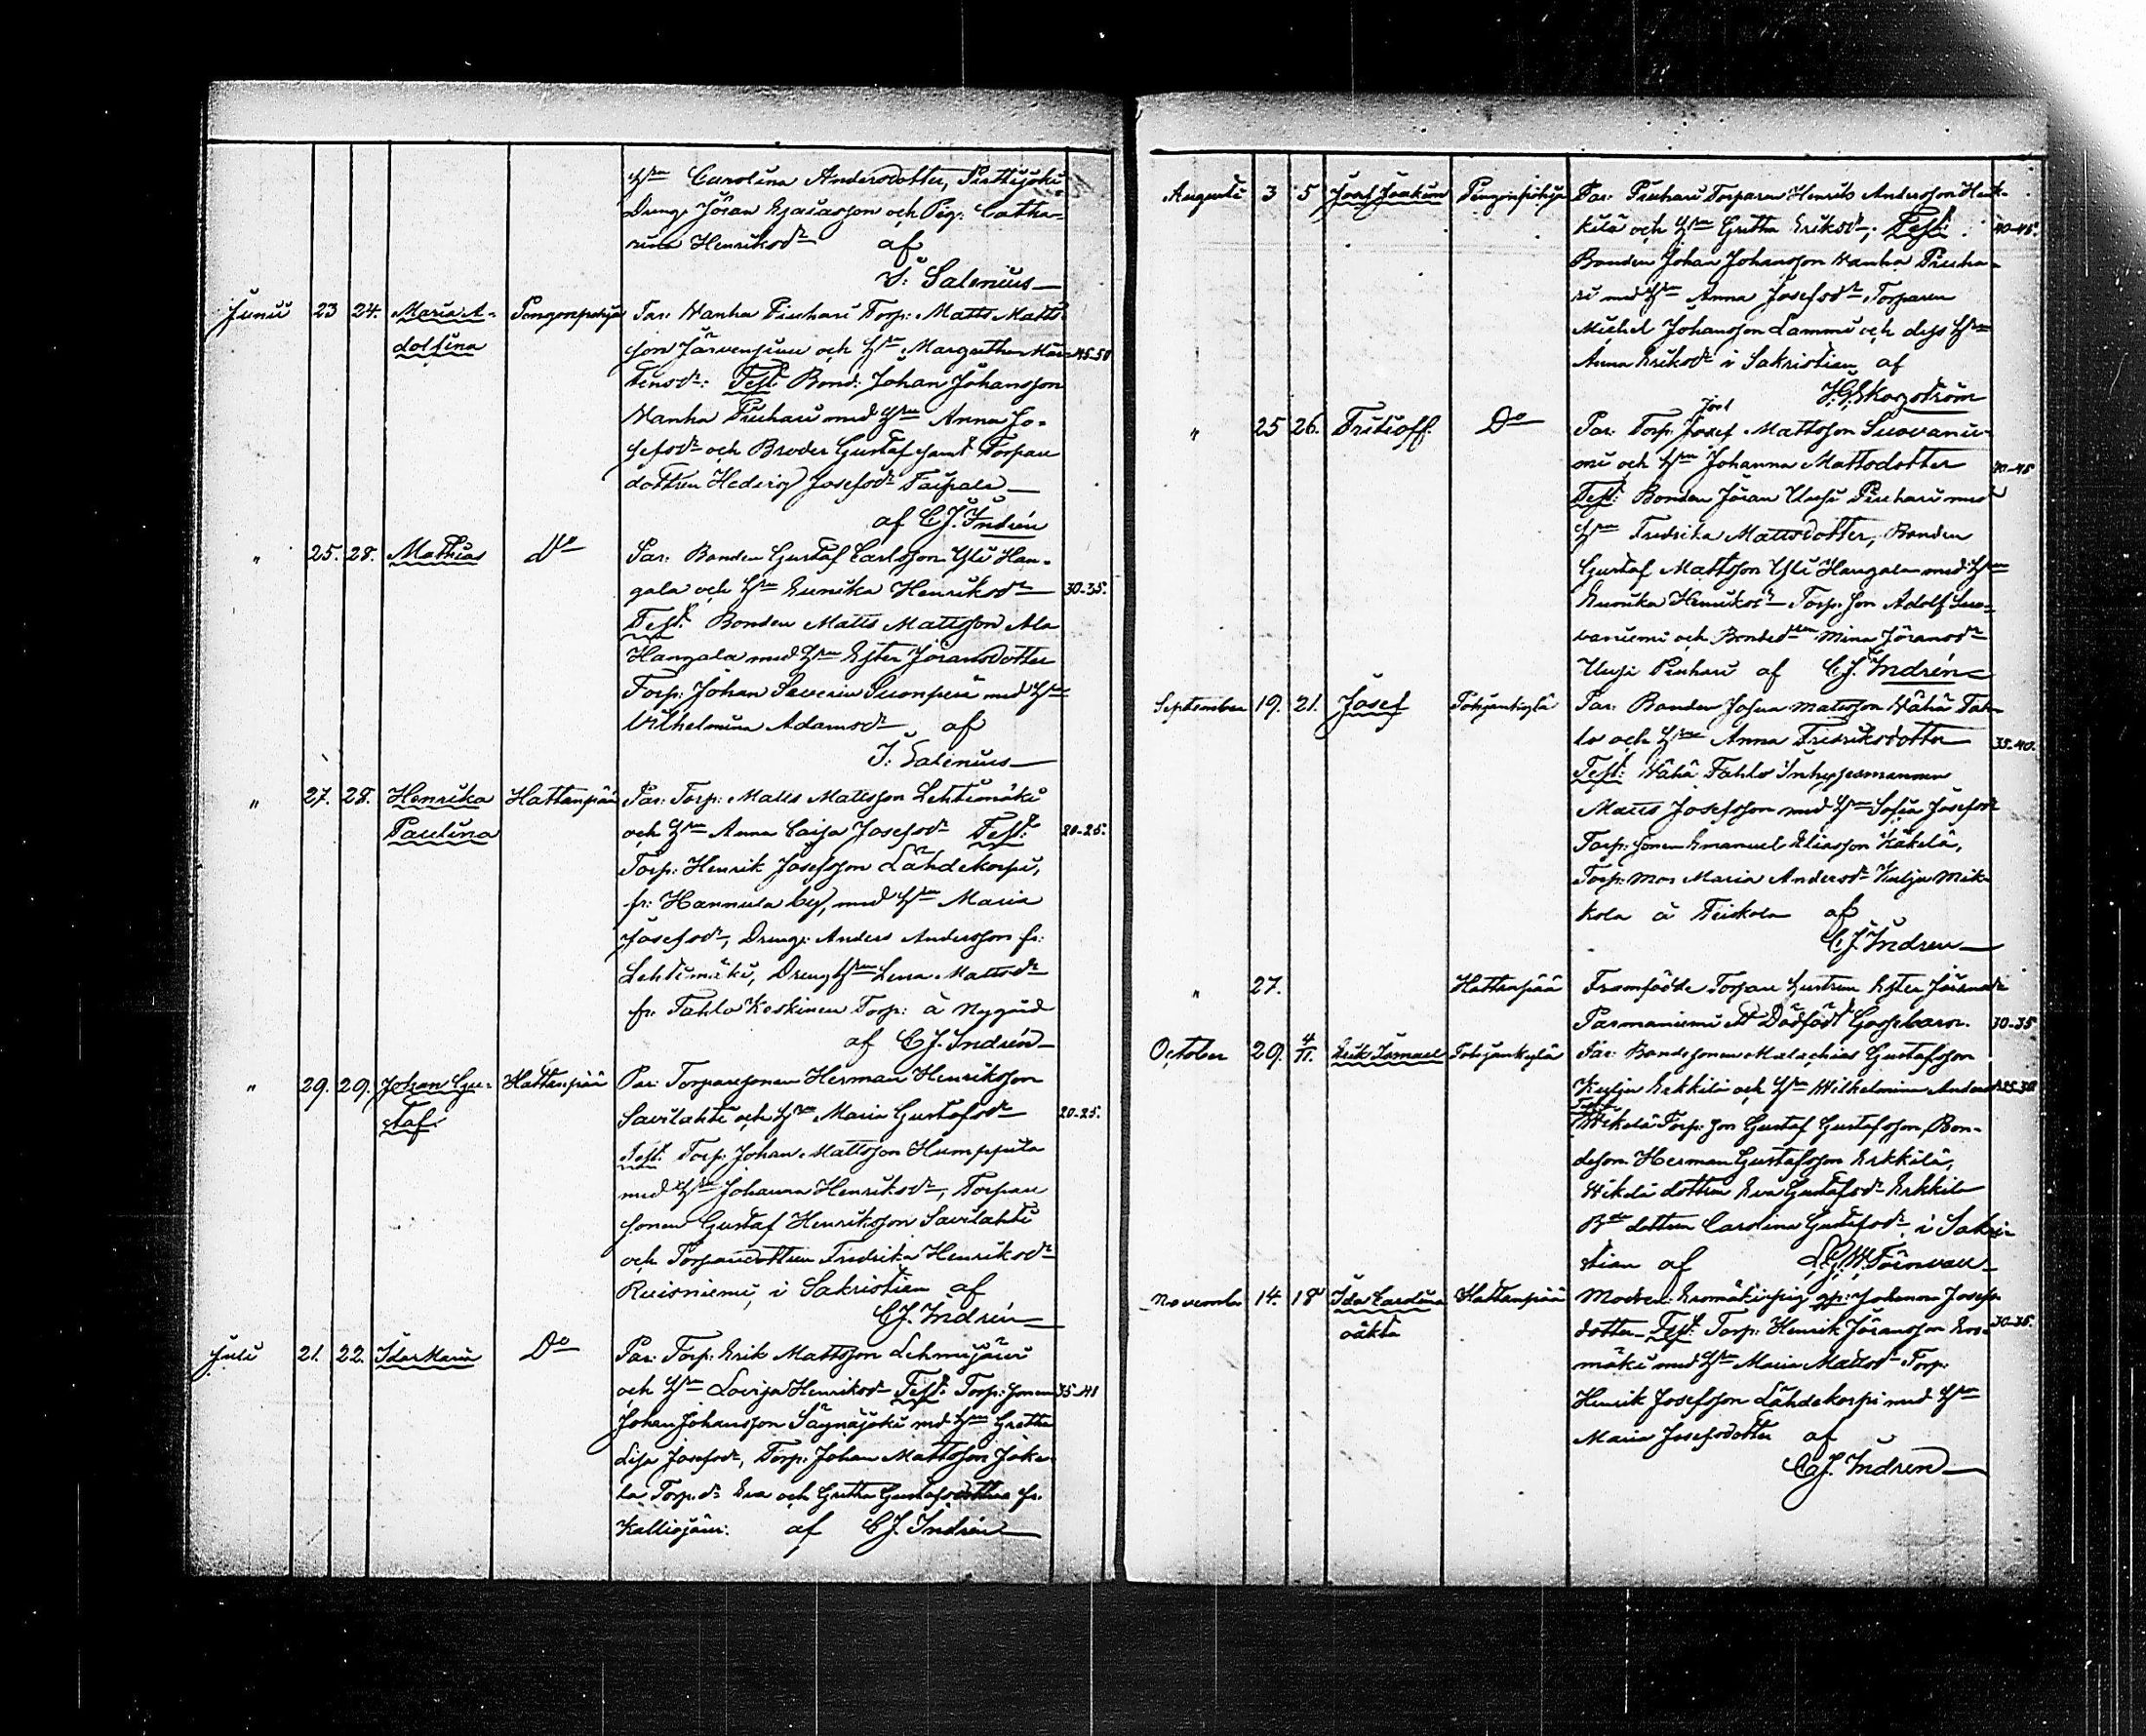 Hru Carolina Andersdotter, Perttijoki
Dreng: Jöran Esaiasson och Pig: Catha-
rina Henriksdr af
J. Salenius
Junii 23 24. Maria A- Pengonpohja Par: Wanha Piuhari Torp: Matts Matts
dolfina son Järvensivu och Hru Margaretha Mår- 45-50
tensdr: Test: Bond: Johan Johansson
Wanha Piuhari med Hru Anna Jo-
sefsdr och Broder Gustaf samt Torpare
dottren Hedvig Josefsdr Taipale
af C J. Indrén
" 25. 28. Mathias Do Par: Bonden Gustaf Carlsson Yli Han-
gala och Hru Eunika Henriksdr 30-35.
Test: Bonden Matts Mattsson Ala
Hangala med Hru Ester Jöransdotter
Torp: Johan Severin Suonperä med Hru
Wilhelmina Adamsdr af
J. Salenius
" 27. 28. Henrika Hattanpää Par: Torp: Matts Mattsson Lehtimäki
Paulina och Hru Anna Caisa Josefsdr Test: 20-25.
Torp: Henrik Josefsson Lähdekorpi,
fr: Hannula by, med Hru Maria
Josefsdr, Dreng: Anders Andersson fr:
Lehtimäki, Dreng Hru Lena Mattsdr
fr: Tahlo Koskinen Torp: à Nygård
af C J. Indrén
" 29. 29. Johan Gu- Hattanpää Par: Torparesonen Herman Henriksson
staf. Savilahti och Hru Maria Gustafsdr 20-25.
Test: Torp: Johan Mattsson Humppula
med Hru Johanna Henriksdr, Torpare
sonen Gustaf Henriksson Savilahti
och Torparedottren Fredrika Henriksdr
Ruisniemi, i Sakristian af
C J. Indrén
Juli 21. 22. Ida Maria Do Par: Torp: Erik Mattsson Lehmijärvi
och Hru Lovisa Henriksdr Test: Torp: sonen 35-41
Johan Johansson Säynäjoki med Hru Gretha
Lisa Josefsdr, Torp: Johan Mattsson Joke-
la Torp. dr Eva och Gretha Gustafsdöttrar fr.
Kalliojärvi. af C J. Indrén
Augusti 3 5 Josef Joakim Pengonpohja Par: Piuhari Torparen Henrik Andersson Heik-
kilä och Hru Gretha Eriksdr, Test: 40-45.
Bonden Johan Johansson Wanha Piuha-
ri med Hru Anna Josefsdr Torparen
Michel Johansson Lammi och dess Hru
Anna Eriksdr i Sakristian af
J.G. Skogström
" 25 26. Fritioff. Do Par: Torp: Josef Mattsson Suovanie-
mi och Hru Johanna Mattsdotter 40-45
Test: Bonden Jöran Uusi Piuhari med
Hru Fredrika Mattsdotter, Bonden
Gustaf Mattsson Yli Hangala med Hru
Eunika Henriksdr Torp. son Adolf Suo-
vaniemi och Bondedren Mina Jöransdr
Uusi Piuhari af C J. Indrén
September 19. 21. Josef Pohjankylä Par: Bonden Josua Mattsson Wähä Tah-
lo och Hru Anna Fredriksdotter 35-40.
Test: Wähä Tahlo Inhysesmannen
Matts Josefsson med Hru Sofia Josefsdr
Torp: sonen Emanuel Eliasson Käkelä,
Torp: mor Maria Andersdr Kulju Mik-
kola à Teiskola af
C J. Indren
" 27. Hattanpää Framfödde Torpare Hustrun Ester Jöransdr
Parmaniemi ett Dödfödt Gossebarn. 30-35
October 29. 4/11. Erik Ismael Pohjankylä Par: Bondesonen Malachias Gustafsson
Kulju Erkkilä och Hru Wilhelmina Andersdr 25-30
Test: Mikkola Torp: son Gustaf Gustafsson, Bon-
deson Herman Gustafsson Erkkilä,
Mikola dottren Eva Gustafsdr Erkkilä
Bde dottren Carolina Gustafsdr, i Sakri-
stian af Törnvall
November 14. 18 Ida Carolina Hattanpää Modren: Eromäki pig: Johanna Josefs
oäkta dotter Test: Torp: Henrik Jöransson Ero- 30-35.
mäki med Hru Maria Mattsdr Torp:
Henrik Josefsson Lähdekorpi med Hru
Maria Josefsdotter af
C J. Indren